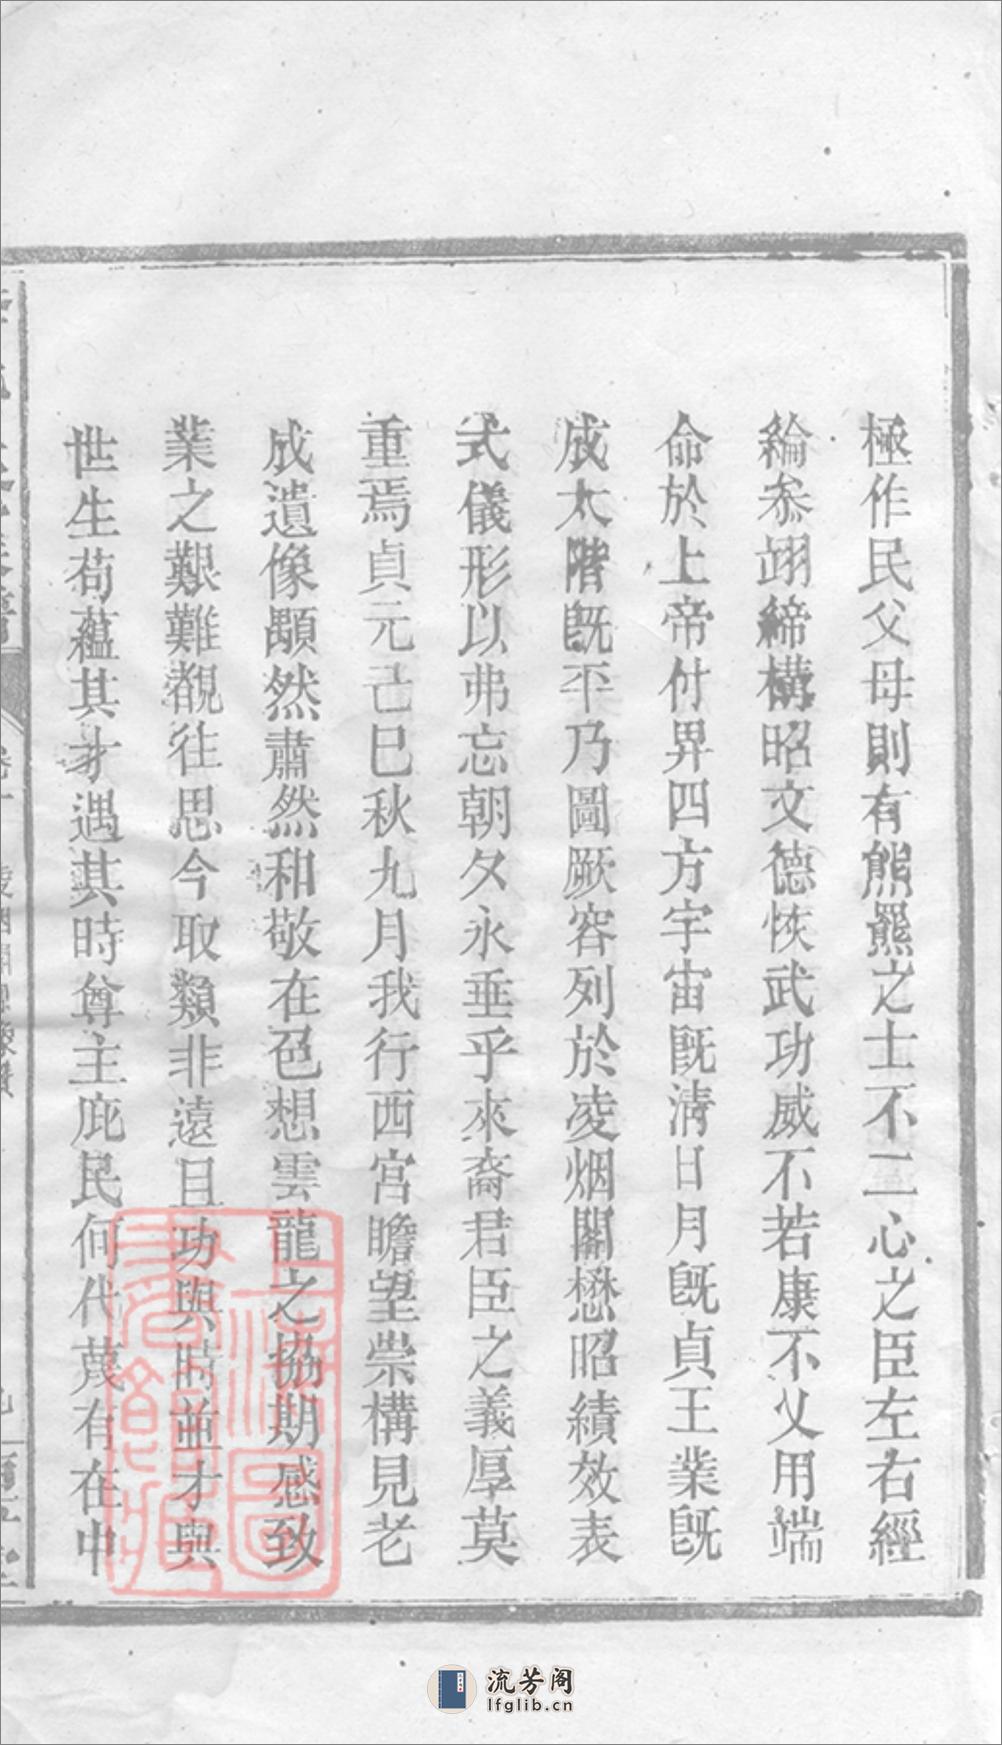 極作民父母則有熊羆之士不二心之臣左右經
綸叅翊締構昭文德恢武功威不若康不乂用端
命於上帝付畀四方宇宙旣淸日月旣貞王業旣
成太階旣平乃圖厥容列於凌烟閣懋昭績效表
式儀形以弗忘朝夕永垂乎來裔君臣之義厚莫
重焉貞元己巳秋九月我行西宮瞻望崇構見老
成遺像顒然肅然和敬在色想雲龍之協期感致
業之艱難覩往思今取類非遠且功與時並才與
世生苟蘊其才遇其時尊主庇民何代蔑有在中
凌烟閣
上海圖書館藏
流芳阁
lfglib.cn